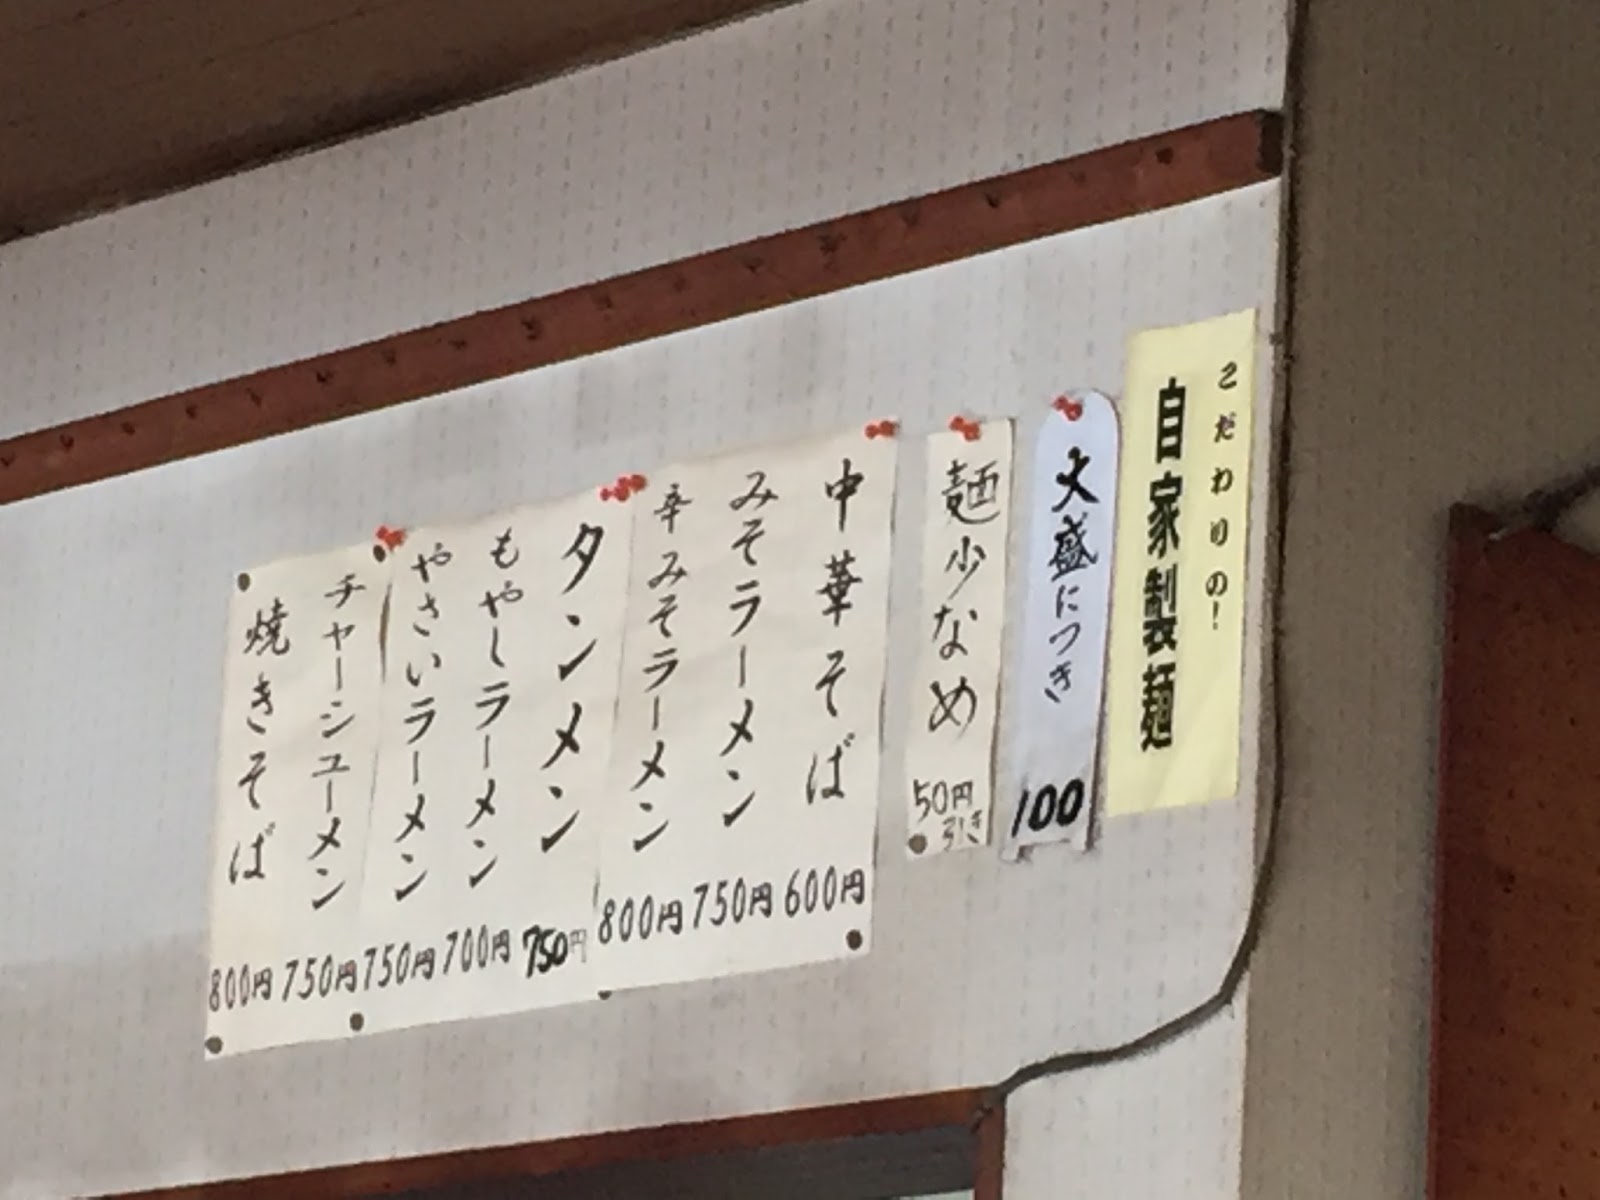 こだわりの!
自家製麺
大盛につき 100
麺少なめ 50円引き
中華そば 600円
みそラーメン 750円
辛みそラーメン 800円
タンメン 750円
もやしラーメン 700円
やさいラーメン 750円
チャーシューメン 750円
焼きそば 800円